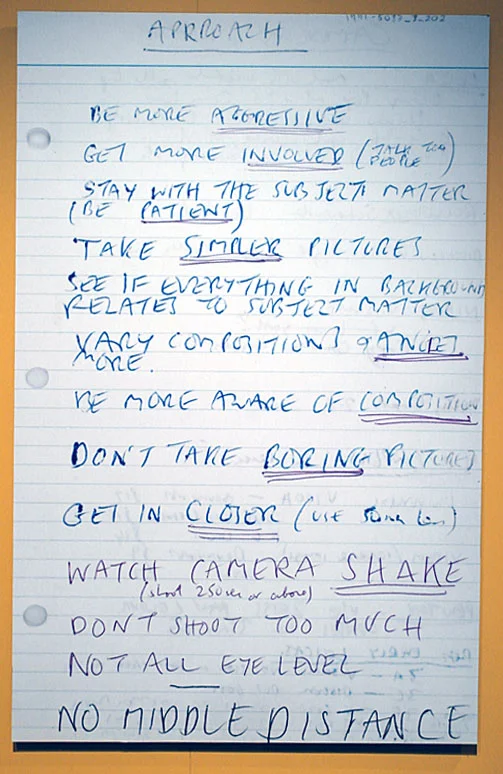 1991-5093_9_202
APRROACH
BE MORE AGGRESSIVE
GET MORE INVOLVED (TALK TO
PEOPLE)
STAY WITH THE SUBJECT MATTER
(BE PATIENT)
TAKE SIMPLER PICTURES
SEE IF EVERYTHING IN BACKGROUND
RELATES TO SUBJECT MATTER
VARY COMPOSITIONS & ANGLES
MORE.
BE MORE AWARE OF COMPOSITION
DON'T TAKE BORING PICTURES
GET IN CLOSER (use 50mm lens)
WATCH CAMERA SHAKE
(shoot 250sec or above)
DON'T SHOOT TOO MUCH
NOT ALL EYE LEVEL
NO MIDDLE DISTANCE